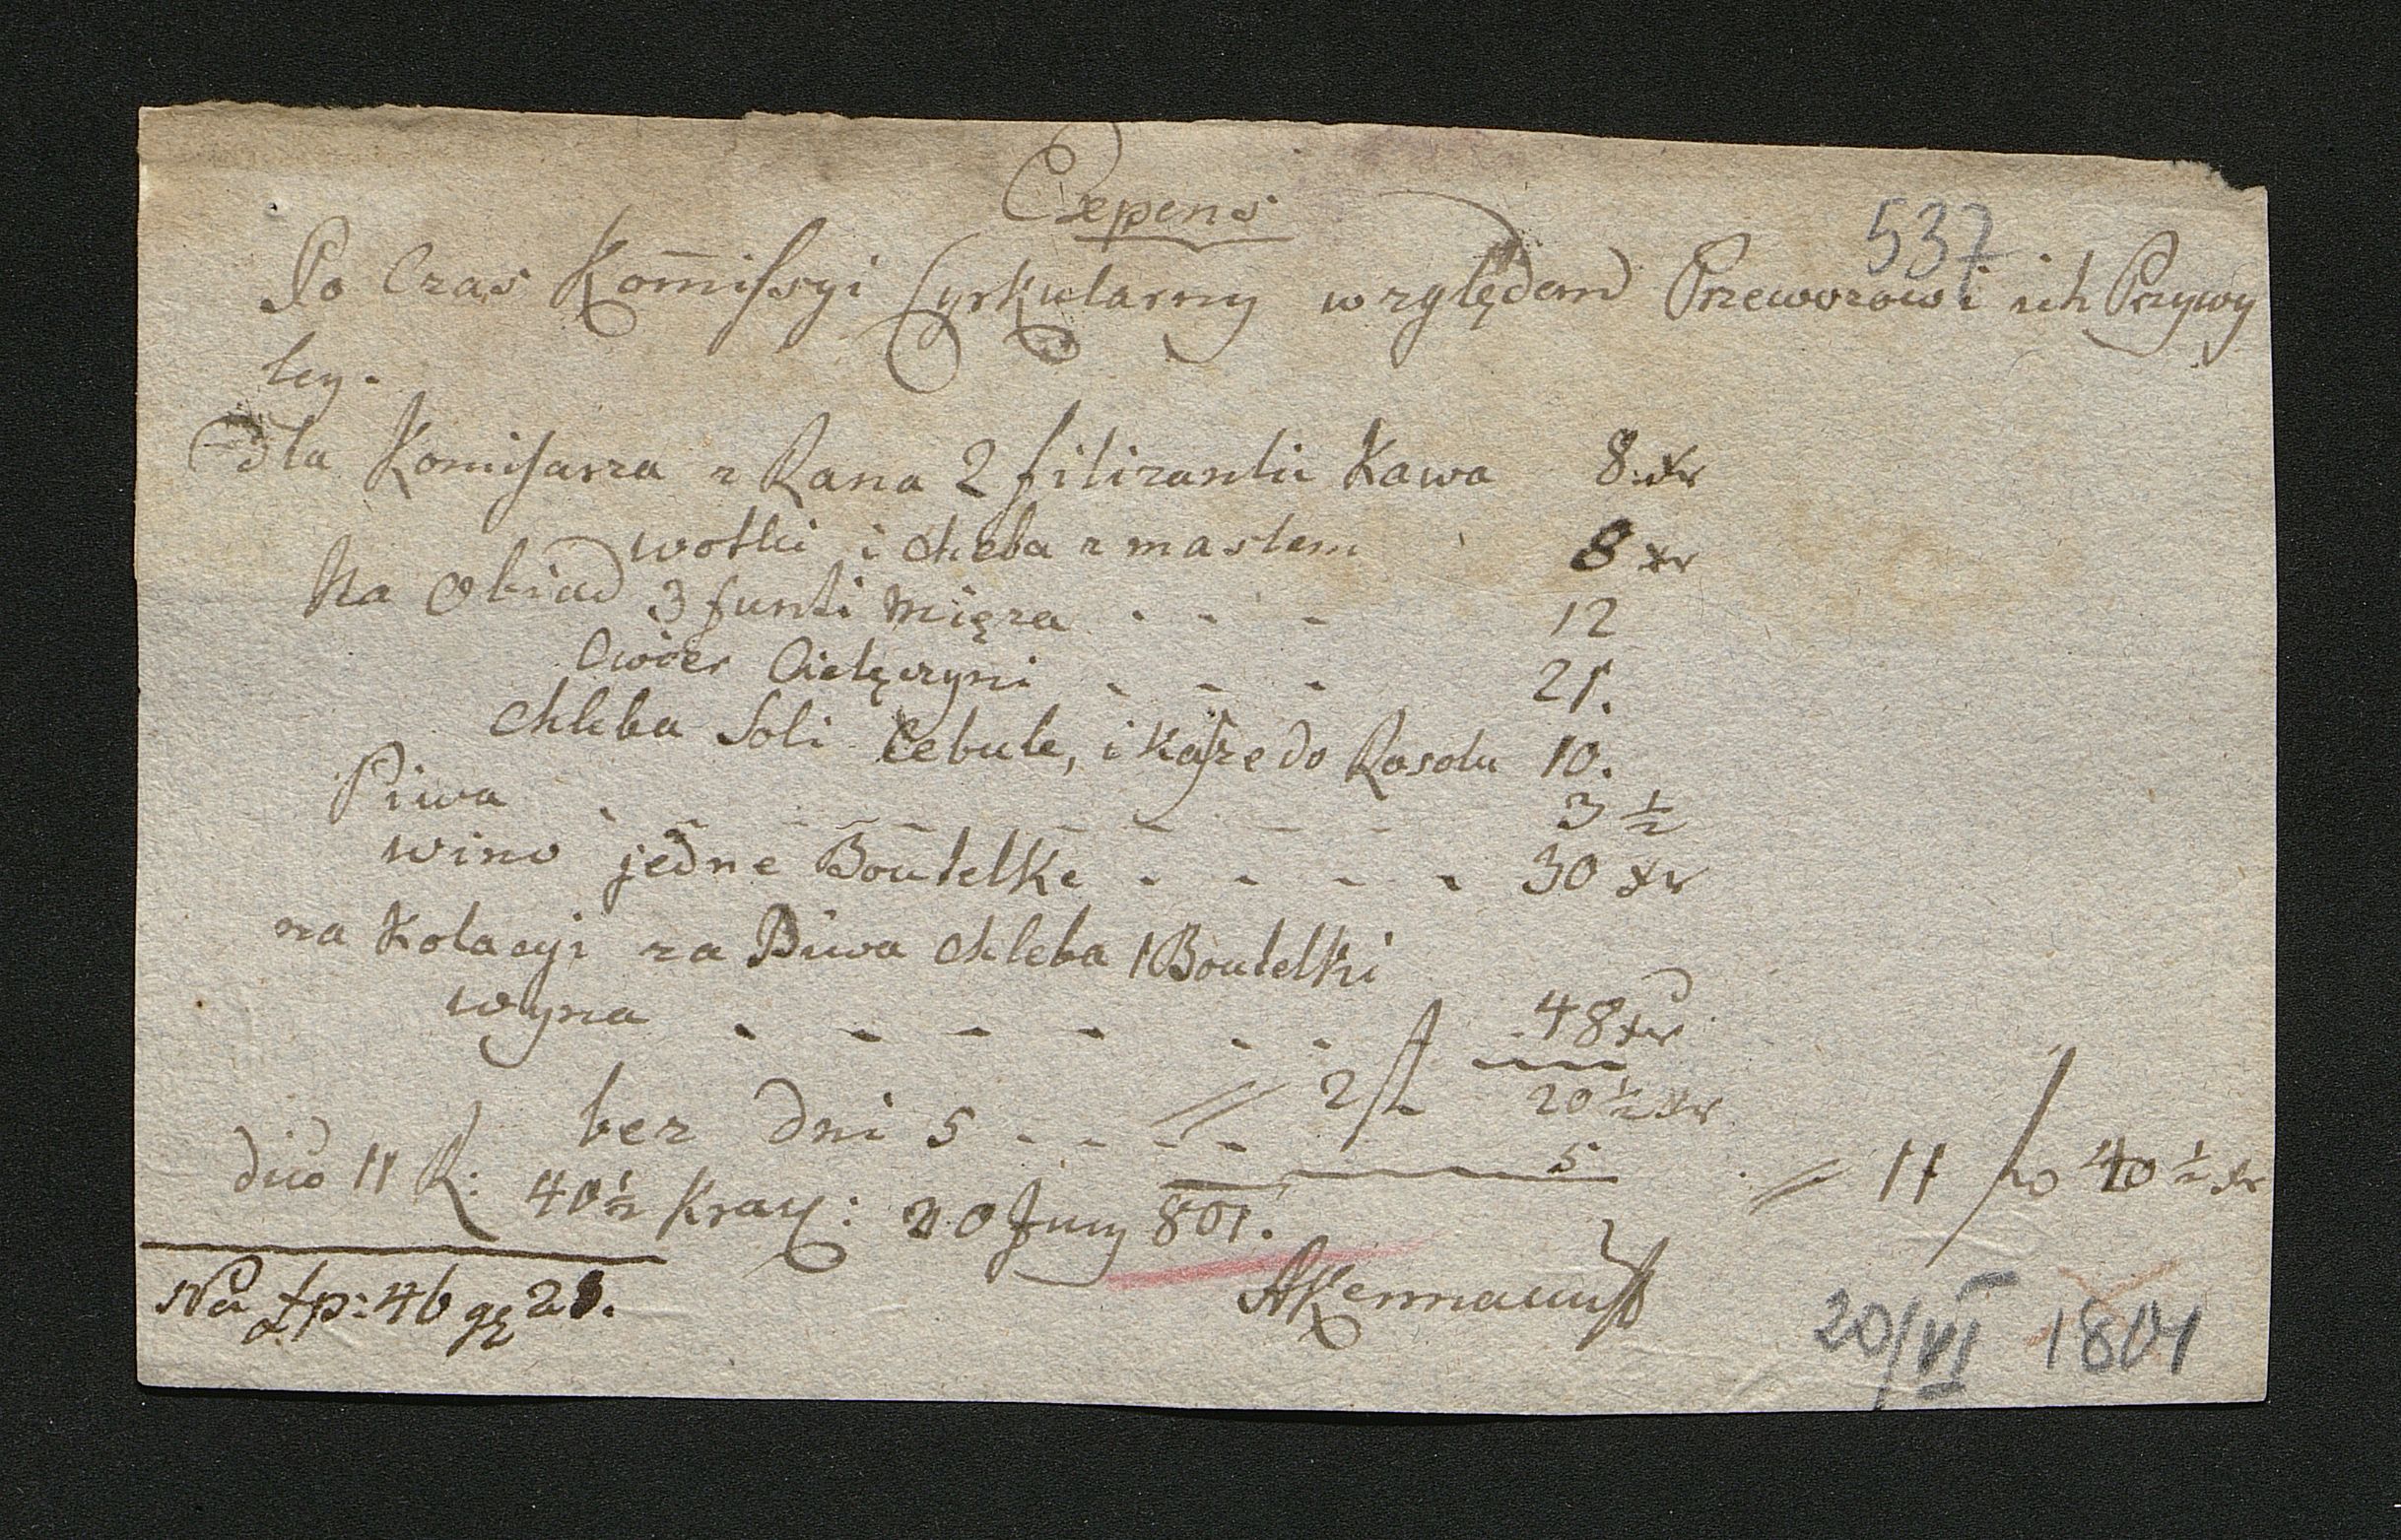 Expens
537
Po Czas Kom̄issyi Cyrkularny względem Przewozowi ich Przywy
ley.
dla Komissarza z Rana 2 filizanki Kawa 8 xr
wotki i chleba z maslem 8 xr
Na Obiad 3 funti Mięza - - - 12
Cwöer Cielęczyni - - - 21.
Chleba Soli Cebule, i Kasze do Rosolu 10.
Piwa - - - - - - - - 3 ½
wino jedne Boutelke - - - - 30 xr
na Kolacyi za Biwa chleba 1 Boutelki
wyna - - - - - - - 48 xr
2 f 20 ½ xr
bez dni 5 - - - - 5
= 11 f 40 ½ xr
dico 11 R: 40½ Kray: 20 Juny 801.
AKermann
Na Zp: 46 gę 21.
20/VI 1801